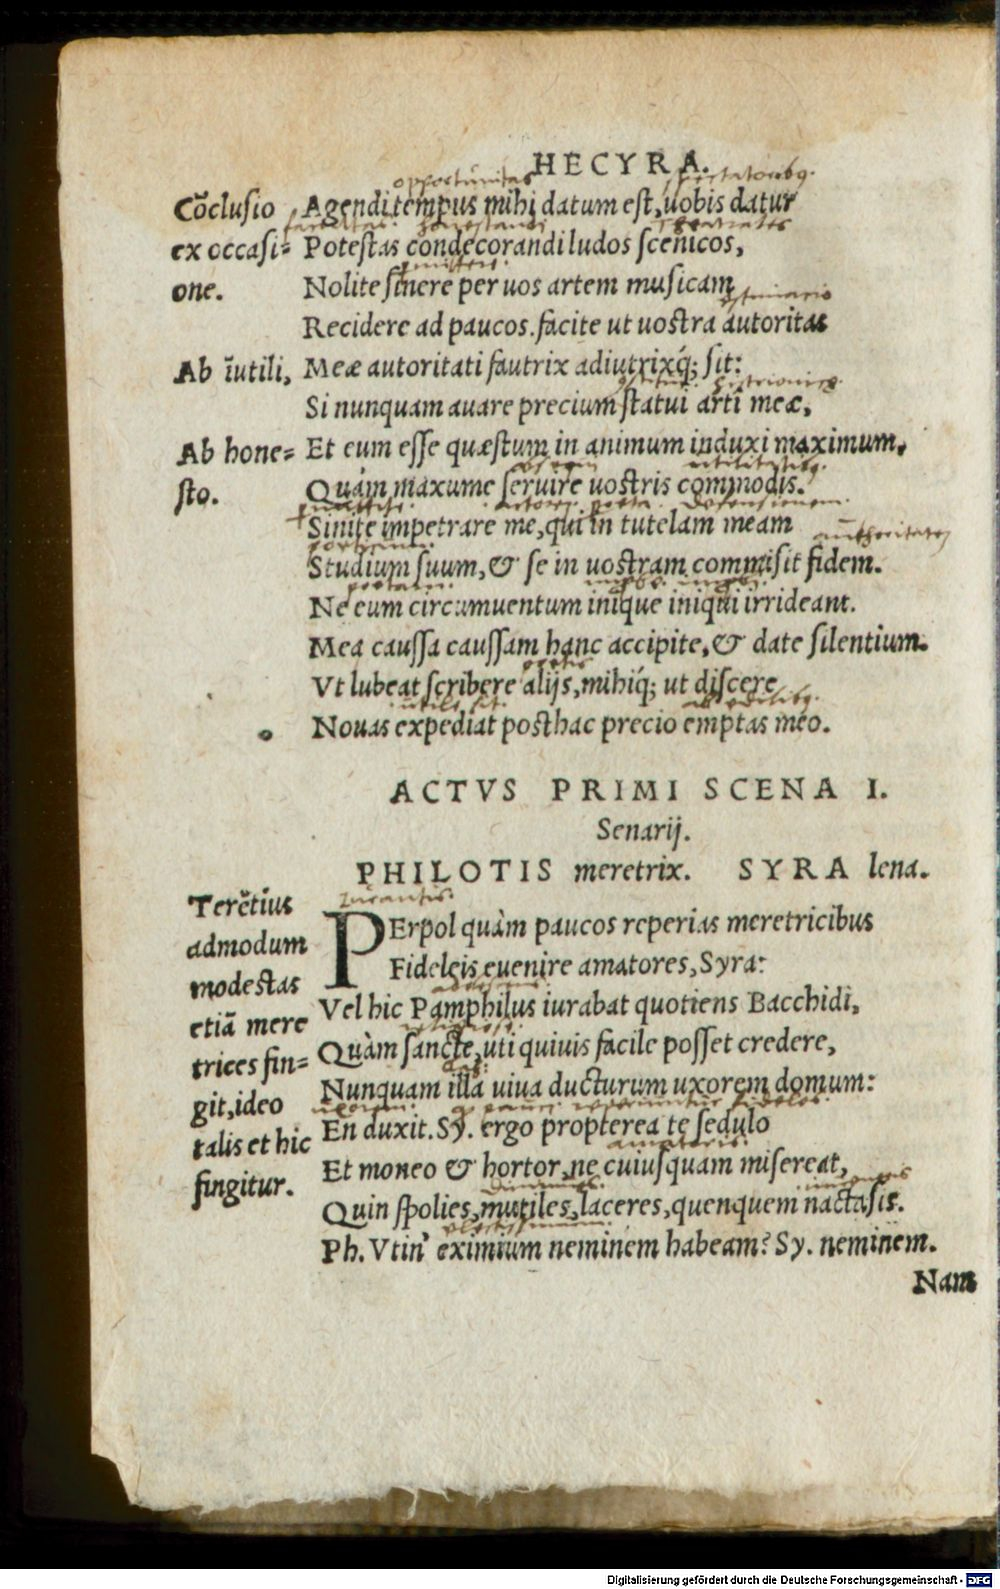 HECYRA.
opportunitas spectatoribq.
Cõclusio Agendi tempus mihi datum est, uobis datur
ex occasi= Potestas condecorandi ludos scenicos,
one. Nolite sinere per uos artem musicam
Recidere ad paucos. facite ut uostra autoritas
Ab ĩutili, Meæ autoritati fautrix adiutrixq́; sit:
Si nunquam auare precium statui arti meæ,
Ab hone= Et eum esse quæstum in animum induxi maximum,
utilitatibq.
sto. Quàm maxume seruire uostris commodis.
defensionem
Sinite impetrare me, qui in tutelam meam
authoritatem
Studium suum, & se in uostram commisit fidem.
Ne eum circumuentum inique iniqui irrideant.
poetam
Mea caussa caussam hanc accipite, & date silentium.
poetis
Vt lubeat scribere alijs, mihiq́; ut discere
utile sit
Nouas expediat posthac precio emptas meo.
ACTVS PRIMI SCENA I.
Senarij.
PHILOTIS meretrix. SYRA lena.
Terẽtius
admodum
modestas
etiã mere
trices fin=
git, ideo
talis et hic
fingitur.
PErpol quàm paucos reperias meretricibus
Fideleis euenire amatores, Syra:
Vel hic Pamphilus iurabat quotiens Bacchidi,
Quàm sancte, uti quiuis facile posset credere,
Nunquam illa uiua ducturum uxorem domum:
En duxit. Sy. ergo propterea te sedulo
Et moneo & hortor, ne cuiusquam misereat,
Quin spolies, mutiles, laceres, quenquem nacta sis.
Ph. Vtin' eximium neminem habeam? Sy. neminem.
Nam
Digitalisierung gefördert durch die Deutsche Forschungsgemeinschaft - DFG